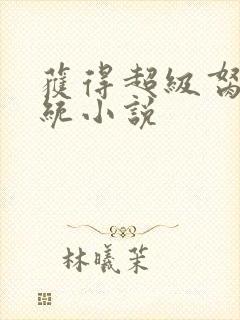 獲得超級努
統小說
林曦茉